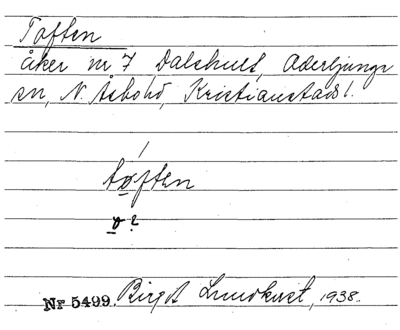 Toften
åker nr 7, Dalshult, Oderljunga
sn, N. Åsbohd, Kristianstads l.
tøften
ø ?
Nr 5499. Birgit Lundkvist, 1938.